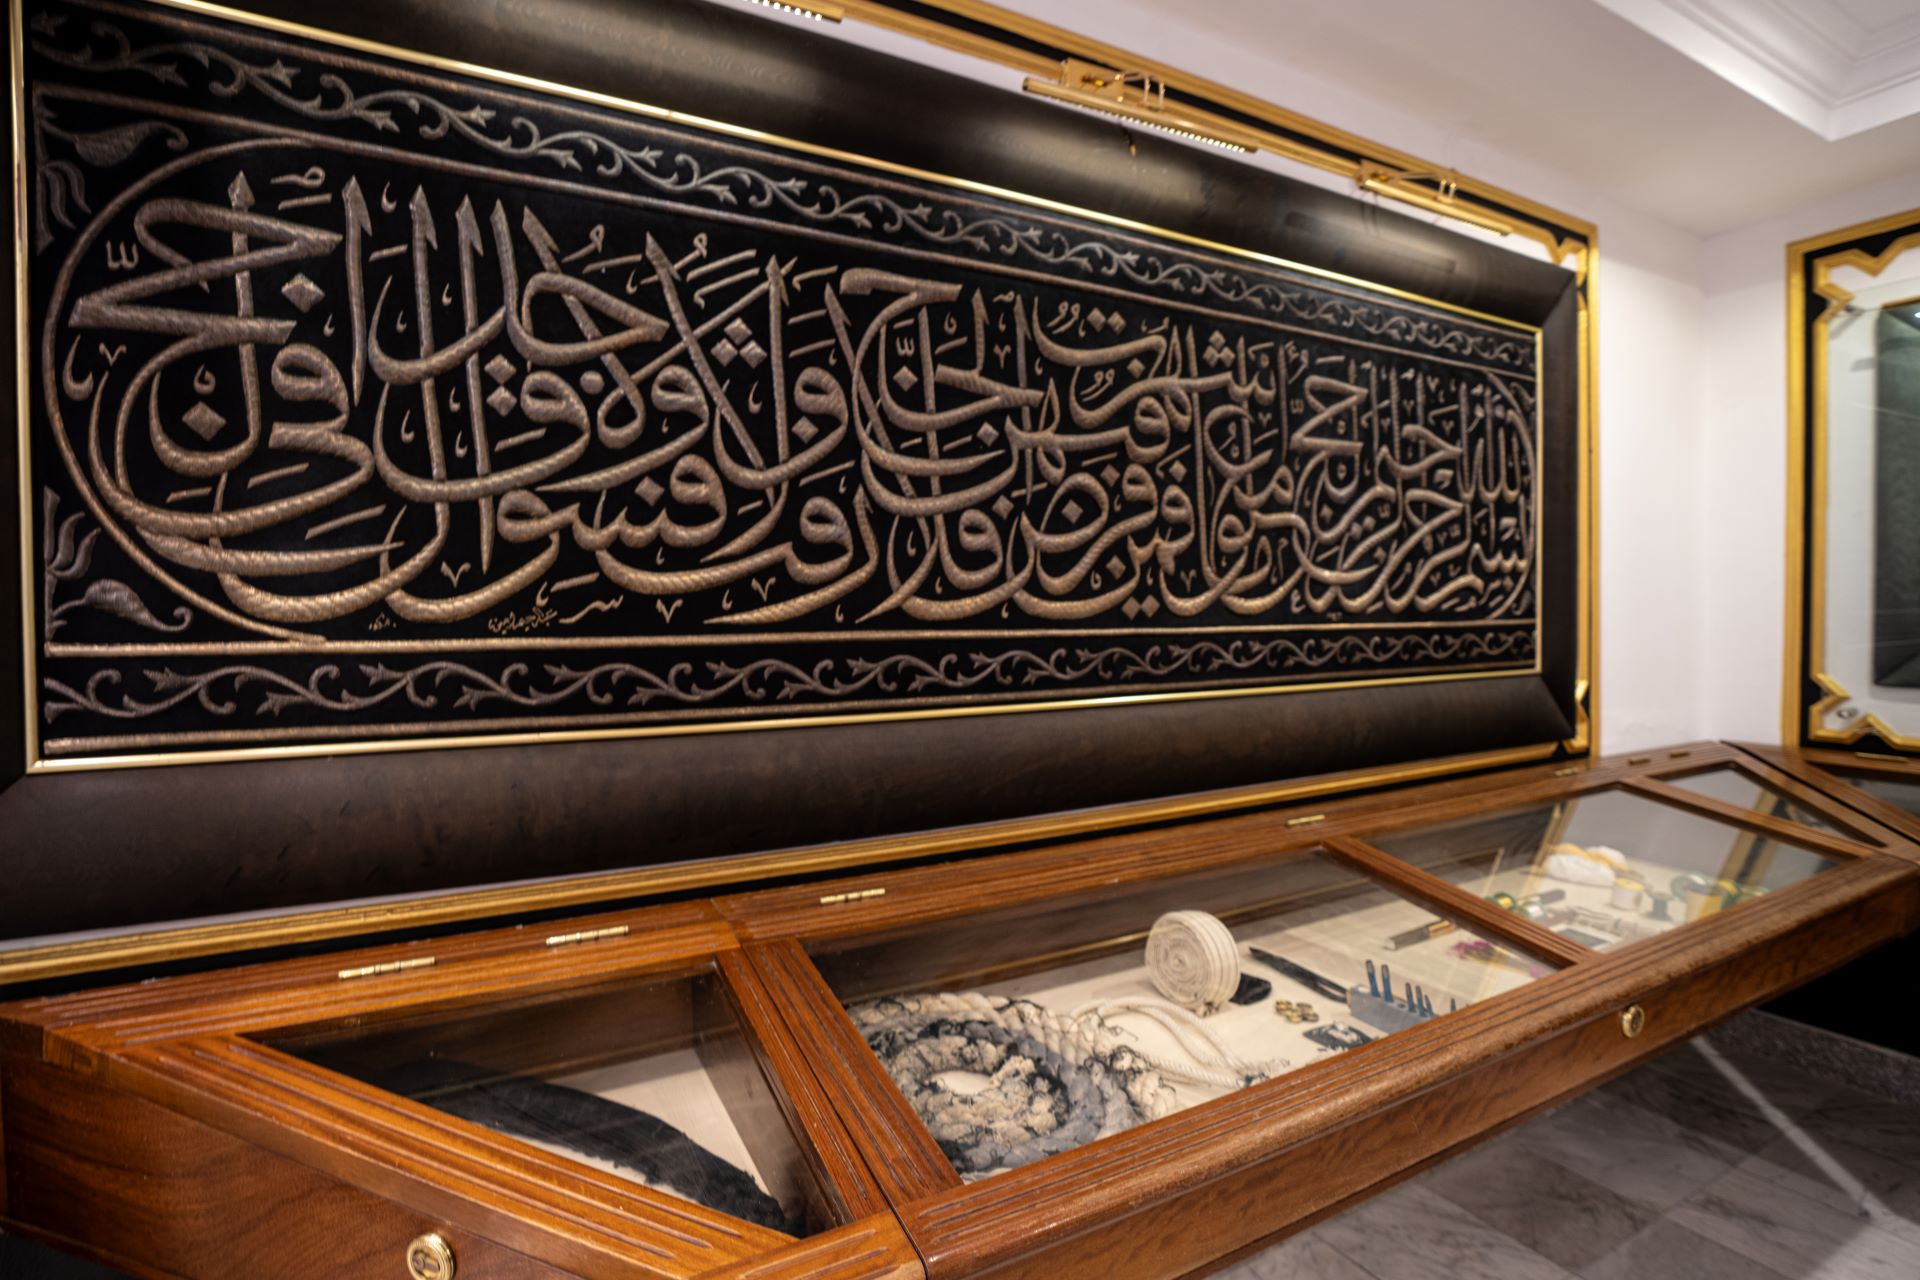 بِسْمِ اللَّهِ الرَّحْمَٰنِ الرَّحِيمِ الْحَجُّ أَشْهُرٌ مَعْلُومَاتٌ فَمَنْ فَرَضَ فِيهِنَّ الْحَجَّ فَلَا رَفَثَ وَلَا فُسُوقَ وَلَا جِدَالَ فِي الْحَجِّ